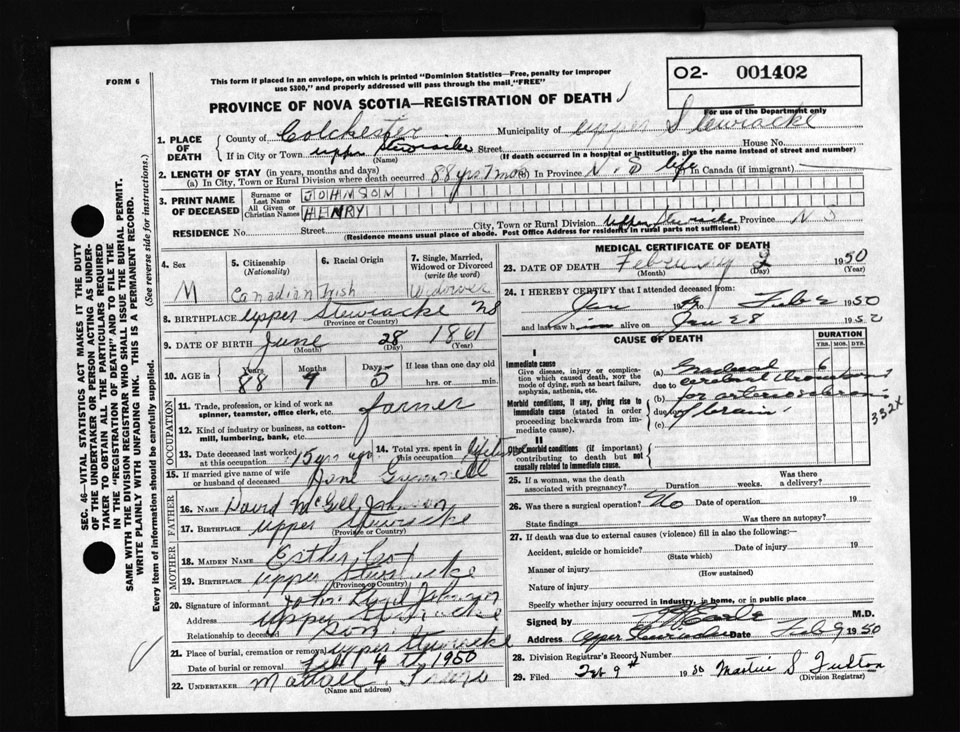 FORM 6
This form if placed in an envelope, on which is printed "Dominion Statistics—Free, penalty for improper
use $300," and properly addressed will pass through the mail "FREE"
O2- 001402
For use of the Department only
PROVINCE OF NOVA SCOTIA—REGISTRATION OF DEATH
1. PLACE OF DEATH
County of Colchester Municipality of Upper Stewiacke
If in City or Town Upper Stewiacke Street House No.
(Name) (If death occurred in a hospital or institution, give the name instead of street and number)
2. LENGTH OF STAY (in years, months and days)
(a) In City, Town or Rural Division where death occurred 88 yrs. 7 mos In Province N.S life In Canada (if immigrant)
3. PRINT NAME OF DECEASED
Surname or Last Name JOHNSON
All Given or Christian Names HENRY
RESIDENCE No. Street City, Town or Rural Division Upper Stewiacke Province N S
(Residence means usual place of abode. Post Office Address for residents in rural parts not sufficient)
4. Sex M
5. Citizenship (Nationality) Canadian
6. Racial Origin Irish
7. Single, Married, Widowed or Divorced (write the word) Widower
8. BIRTHPLACE Upper Stewiacke NS
(Province or Country)
9. DATE OF BIRTH June 28 1861
(Month) (Day) (Year)
10. AGE in Years Months Days If less than one day old
88 5 hrs. or min.
OCCUPATION
11. Trade, profession or kind of work as spinner, teamster, office clerk, etc. farmer
12. Kind of industry or business, as cotton-mill, lumbering, bank, etc.
13. Date deceased last worked at this occupation yrs ago
14. Total yrs. spent in this occupation Lifetime
15. If married give name of wife or husband of deceased Jane
FATHER
16. NAME David McGill Johnson
17. BIRTHPLACE Upper Stewiacke
(Province or Country)
MOTHER
18. MAIDEN NAME Esther
19. BIRTHPLACE Upper Stewiacke
(Province or Country)
20. Signature of informant John Johnson
Address Upper Stewiacke
Relationship to deceased Son
21. Place of burial, cremation or removal Upper Stewiacke
Date of burial or removal Feb 4 th 1950
22. UNDERTAKER Mattatall
(Name and address)
MEDICAL CERTIFICATE OF DEATH
23. DATE OF DEATH February 2 1950
(Month) (Day) (Year)
24. I HEREBY CERTIFY that I attended deceased from:
Jan to Feb 2 1950
and last saw him alive on Jan 28 195
CAUSE OF DEATH
DURATION
YRS. MOS. DYS.
I
Immediate cause
Give disease, injury or complication which caused death, not the mode of dying, such as heart failure, asphyxia, asthenia, etc.
(a) Gradual 6
due to cerebral
Morbid conditions, if any, giving rise to immediate cause (stated in order proceeding backwards from immediate cause).
(b)
due to
(c) of brain
332X
II
Other morbid conditions (if important) contributing to death but not causally related to immediate cause.
25. If a woman, was the death associated with pregnancy? Duration weeks. Was there a delivery?
26. Was there a surgical operation? No Date of operation 19
State findings Was there an autopsy?
27. If death was due to external causes (violence) fill in also the following:
Accident, suicide or homicide? Date of injury 19
(State which)
Manner of injury
(How sustained)
Nature of injury
Specify whether injury occurred in industry, in home, or in public place
Signed by M.D.
Address Upper Stewiacke Date Feb 9 1950
28. Division Registrar's Record Number
29. Filed Feb 9th 1950 S. Fulton
(Division Registrar)
SEC. 46—VITAL STATISTICS ACT MAKES IT THE DUTY
OF THE UNDERTAKER OR PERSON ACTING AS UNDER-
TAKER TO OBTAIN ALL THE PARTICULARS REQUIRED
IN THE "REGISTRATION OF DEATH" AND TO FILE THE
SAME WITH THE DIVISION REGISTRAR WHO SHALL ISSUE THE BURIAL PERMIT.
WRITE PLAINLY WITH UNFADING INK. THIS IS A PERMANENT RECORD.
Every item of information should be carefully supplied. (See reverse side for instructions.)